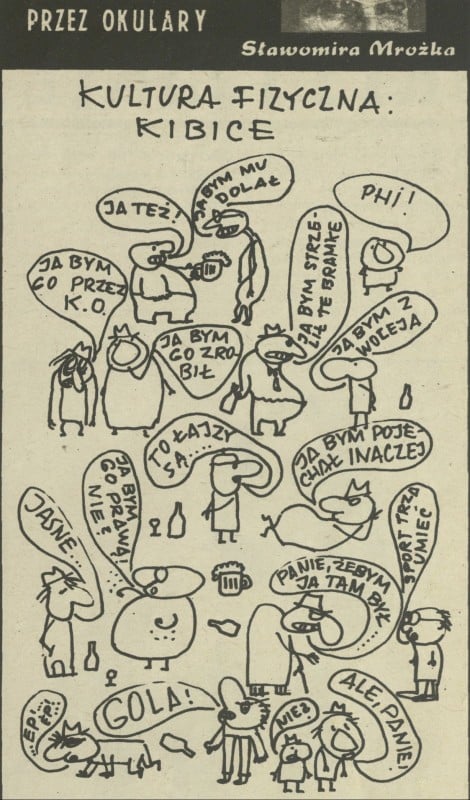 PRZEZ OKULARY
Sławomira Mrożka
KULTURA FIZYCZNA:
KIBICE
JA TEŻ!
JA BYM MU
DOLAŁ
PHI!
JA BYM
GO PRZEZ
K.O.
JA BYM
GO ZRO-
BIŁ
JA BYM STRZE-
LIŁ TE BRAMKE
JA BYM Z
WOLEJA
TO ŁAJZY
SĄ...
JA BYM POJE-
CHAŁ INACZEJ
JASNE...
JA BYM
GO PRAWĄ!
NIE?
PANIE, ŻEBYM
JA TAM BYŁ
...
SPORT TRZA
RUMIEĆ
...EP...
...ŁP!
GOLA!
NIE?
ALE, PANIE!